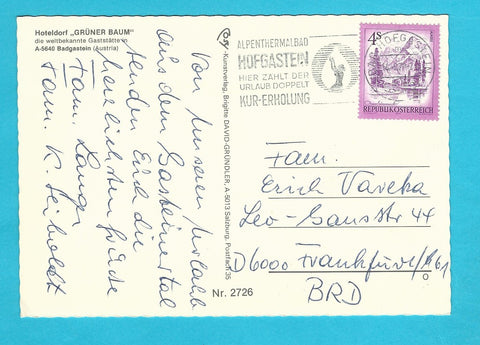 Hoteldorf „GRÜNER BAUM"
die weltbekannte Gaststätte in
A-5640 Badgastein (Austria)
Von unserem Urlaub
aus dem Gasteinertal
senden Euch die
herzlichsten Grüße
Fam. Langer
Fam. K. Seiboldt
Kunstverlag, Brigitte DAVID-GRÜNDLER, A-5013 Salzburg, Postfach 35
Nr. 2726
ALPENTHERMALBAD
HOFGASTEIN
HIER ZÄHLT DER
URLAUB DOPPELT
KUR-ERHOLUNG
HOFGAST
4S
REPUBLIK ÖSTERREICH
Fam.
Erich Vaveka
Leo-Gans str 44
D6000 Frankfurt/M 61
BRD